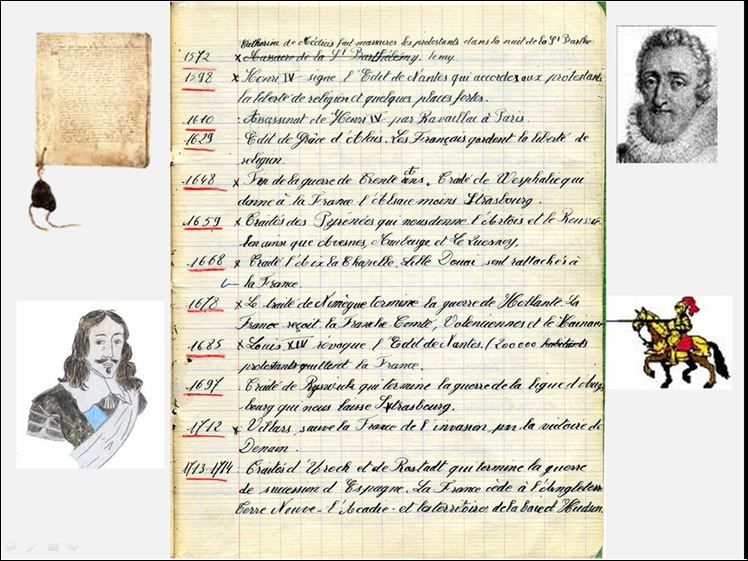 Catherine de Médicis fait massacrer les protestants dans la nuit de la St Barthé
1572 x Massacre de la St Barthélémy. lemy
1598 x Henri IV signe l'Edit de Nantes qui accorde aux protestants
la liberté de religion et quelques places fortes.
1610 . Assassinat de Henri IV par Ravaillac à Paris.
1629 . Edit de Grâce d'Alais. Les Français gardent la liberté de
religion.
1648 x Fin de la guerre de Trente ans. Traité de Wesphalie qui
donne à la France l'Alsace moins Strasbourg.
1659 x Traités des Pyrenées qui nous donne l'Artois et le Roussil
lon ainsi que Avesnes, Maubeuge et Le Quesnoy.
1668 x Traité d'Aix la Chapelle. Lille Douai sont rattachés à
la France.
1678 x Le traité de Nimègue termine la guerre de Hollande. La
France reçoit la Franche Comté, Valenciennes et le Hainaut
1685 x Louis XIV révoque l'Edit de Nantes. (200000 habitants
protestants quittent la France.
1697 . Traité de Ryswick qui termine la guerre de la ligue d'Augs
bourg qui nous laisse Strasbourg.
1712 x Villars sauve la France de l'invasion par la victoire de
Denain.
1713-1714 . Traités d'Utreck et de Rastadt qui termine la guerre
de sucession d'Espagne. La France cède à l'Angleterre
Terre Neuve - l'Acadie - et les territoires de la baie d'Hudson.